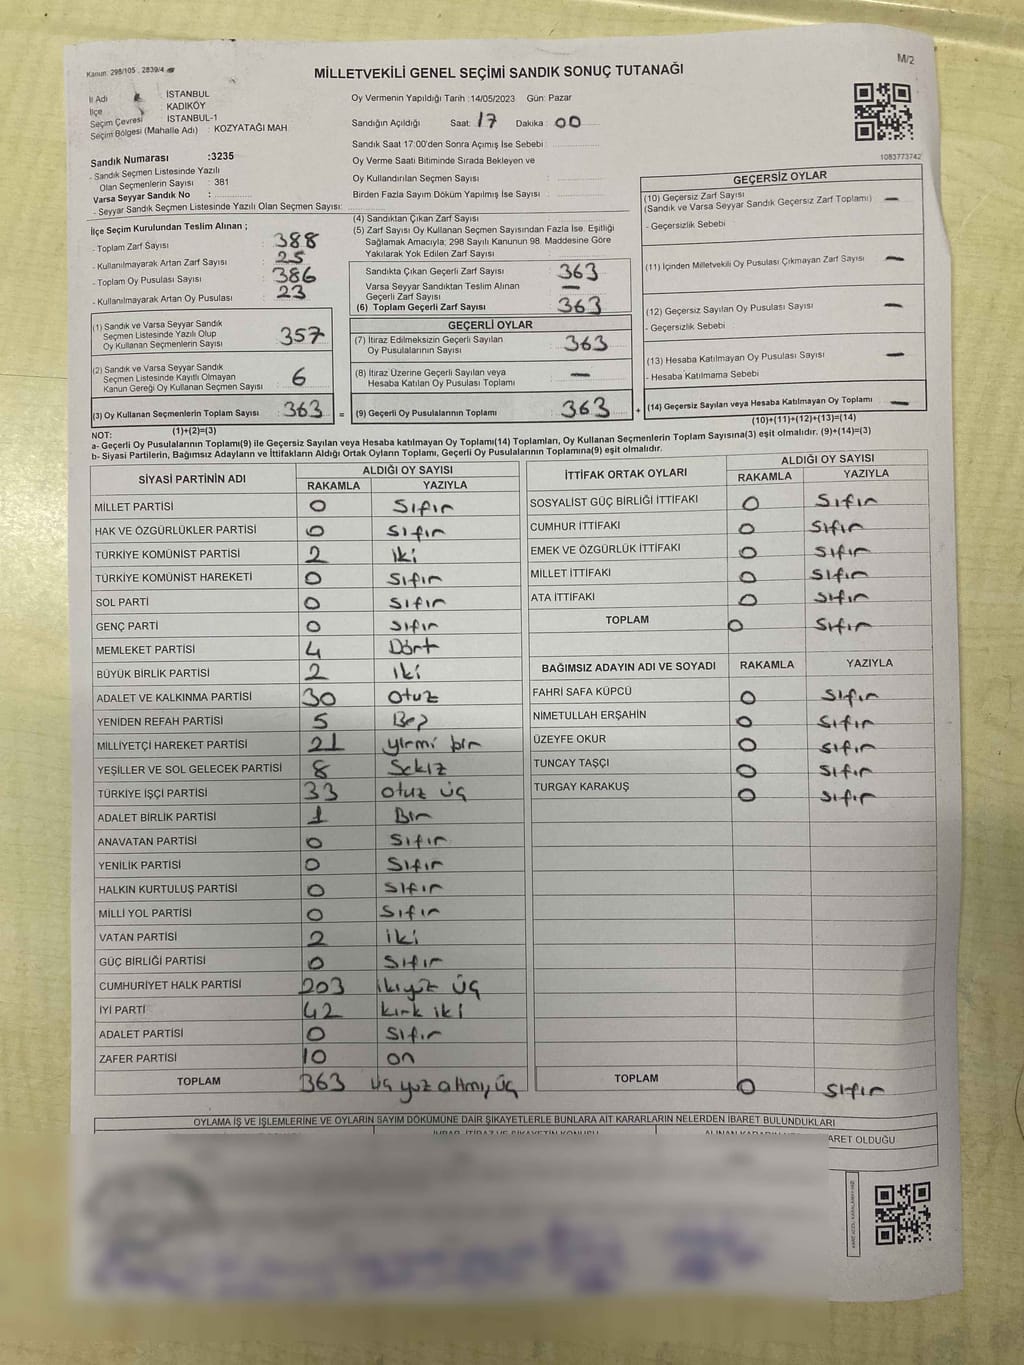 Kanun: 298/105 , 2839/4
M/2
MİLLETVEKİLİ GENEL SEÇİMİ SANDIK SONUÇ TUTANAĞI
İl Adı : İSTANBUL
İlçe : KADIKÖY
Seçim Çevresi : İSTANBUL-1
Seçim Bölgesi (Mahalle Adı) : KOZYATAĞI MAH
Oy Vermenin Yapıldığı Tarih :14/05/2023 Gün: Pazar
Sandığın Açıldığı Saat: 17 Dakika: 00
Sandık Saat 17:00'den Sonra Açımış İse Sebebi :
Oy Verme Saati Bitiminde Sırada Bekleyen ve
Oy Kullandırılan Seçmen Sayısı :
Birden Fazla Sayım Döküm Yapılmış İse Sayısı :
1083773742
Sandık Numarası :3235
- Sandık Seçmen Listesinde Yazılı
Olan Seçmenlerin Sayısı : 381
Varsa Seyyar Sandık No :
- Seyyar Sandık Seçmen Listesinde Yazılı Olan Seçmen Sayısı:
İlçe Seçim Kurulundan Teslim Alınan ;
- Toplam Zarf Sayısı : 388
- Kullanılmayarak Artan Zarf Sayısı : 25
- Toplam Oy Pusulası Sayısı : 386
- Kullanılmayarak Artan Oy Pusulası : 23
(1) Sandık ve Varsa Seyyar Sandık
Seçmen Listesinde Yazılı Olup
Oy Kullanan Seçmenlerin Sayısı : 357
(2) Sandık ve Varsa Seyyar Sandık
Seçmen Listesinde Kayıtlı Olmayan
Kanun Gereği Oy Kullanan Seçmen Sayısı : 6
(3) Oy Kullanan Seçmenlerin Toplam Sayısı : 363 =
(1)+(2)=(3)
(4) Sandıktan Çıkan Zarf Sayısı :
(5) Zarf Sayısı Oy Kullanan Seçmen Sayısından Fazla İse, Eşitliği
Sağlamak Amacıyla; 298 Sayılı Kanunun 98. Maddesine Göre
Yakılarak Yok Edilen Zarf Sayısı :
Sandıkta Çıkan Geçerli Zarf Sayısı : 363
Varsa Seyyar Sandıktan Teslim Alınan
Geçerli Zarf Sayısı : —
(6) Toplam Geçerli Zarf Sayısı : 363
GEÇERLİ OYLAR
(7) İtiraz Edilmeksizin Geçerli Sayılan
Oy Pusulalarının Sayısı : 363
(8) İtiraz Üzerine Geçerli Sayılan veya
Hesaba Katılan Oy Pusulası Toplamı : —
(9) Geçerli Oy Pusulalarının Toplamı : 363 +
GEÇERSİZ OYLAR
(10) Geçersiz Zarf Sayısı
(Sandık ve Varsa Seyyar Sandık Geçersiz Zarf Toplamı) : —
- Geçersizlik Sebebi :
(11) İçinden Milletvekili Oy Pusulası Çıkmayan Zarf Sayısı : —
(12) Geçersiz Sayılan Oy Pusulası Sayısı : —
- Geçersizlik Sebebi :
(13) Hesaba Katılmayan Oy Pusulası Sayısı : —
- Hesaba Katılmama Sebebi :
(14) Geçersiz Sayılan veya Hesaba Katılmayan Oy Toplamı : —
(10)+(11)+(12)+(13)=(14)
NOT:
a- Geçerli Oy Pusulalarının Toplamı(9) ile Geçersiz Sayılan veya Hesaba katılmayan Oy Toplamı(14) Toplamları, Oy Kullanan Seçmenlerin Toplam Sayısına(3) eşit olmalıdır. (9)+(14)=(3)
b- Siyasi Partilerin, Bağımsız Adayların ve İttifakların Aldığı Ortak Oyların Toplamı, Geçerli Oy Pusulalarının Toplamına(9) eşit olmalıdır.
SİYASİ PARTİNİN ADI ALDIĞI OY SAYISI
RAKAMLA YAZIYLA
MİLLET PARTİSİ 0 Sıfır
HAK VE ÖZGÜRLÜKLER PARTİSİ 0 Sıfır
TÜRKİYE KOMÜNİST PARTİSİ 2 iki
TÜRKİYE KOMÜNİST HAREKETİ 0 Sıfır
SOL PARTİ 0 Sıfır
GENÇ PARTİ 0 Sıfır
MEMLEKET PARTİSİ 4 Dört
BÜYÜK BİRLİK PARTİSİ 2 iki
ADALET VE KALKINMA PARTİSİ 30 otuz
YENİDEN REFAH PARTİSİ 5 Beş
MİLLİYETÇİ HAREKET PARTİSİ 21 yirmi bir
YEŞİLLER VE SOL GELECEK PARTİSİ 8 Sekiz
TÜRKİYE İŞÇİ PARTİSİ 33 otuz üç
ADALET BİRLİK PARTİSİ 1 Bir
ANAVATAN PARTİSİ 0 Sıfır
YENİLİK PARTİSİ 0 Sıfır
HALKIN KURTULUŞ PARTİSİ 0 Sıfır
MİLLİ YOL PARTİSİ 0 Sıfır
VATAN PARTİSİ 2 iki
GÜÇ BİRLİĞİ PARTİSİ 0 Sıfır
CUMHURİYET HALK PARTİSİ 203 ikiyüz üç
İYİ PARTİ 42 kırk iki
ADALET PARTİSİ 0 Sıfır
ZAFER PARTİSİ 10 on
TOPLAM 363 üç yüz altmış üç
İTTİFAK ORTAK OYLARI ALDIĞI OY SAYISI
RAKAMLA YAZIYLA
SOSYALİST GÜÇ BİRLİĞİ İTTİFAKI 0 Sıfır
CUMHUR İTTİFAKI 0 Sıfır
EMEK VE ÖZGÜRLÜK İTTİFAKI 0 Sıfır
MİLLET İTTİFAKI 0 Sıfır
ATA İTTİFAKI 0 Sıfır
TOPLAM 0 Sıfır
BAĞIMSIZ ADAYIN ADI VE SOYADI RAKAMLA YAZIYLA
FAHRİ SAFA KÜPCÜ 0 Sıfır
NİMETULLAH ERŞAHİN 0 Sıfır
ÜZEYFE OKUR 0 Sıfır
TUNCAY TAŞÇI 0 Sıfır
TURGAY KARAKUŞ 0 Sıfır
TOPLAM 0 Sıfır
OYLAMA İŞ VE İŞLEMLERİNE VE OYLARIN SAYIM DÖKÜMÜNE DAİR ŞİKAYETLERLE BUNLARA AİT KARARLARIN NELERDEN İBARET BULUNDUKLARI
ARET OLDUĞU